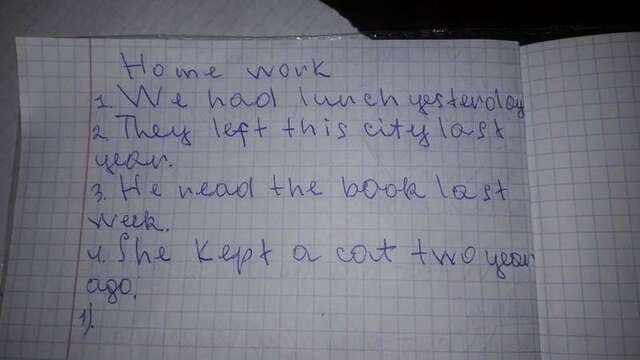 Home work
1. We had lunch yesterday
2. They left this city last
year.
3. He read the book last
week.
4. She kept a cat two year
ago.
1).